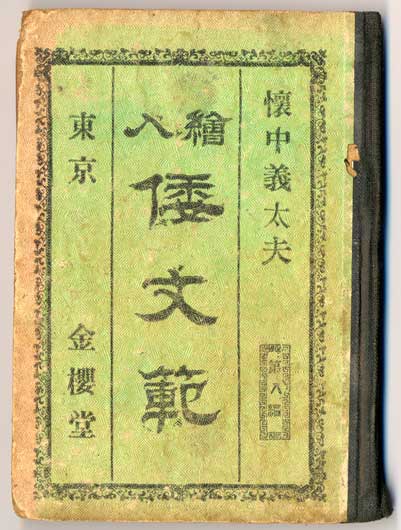 懷中義太夫
第八編
繪入
倭文範
東京 金櫻堂